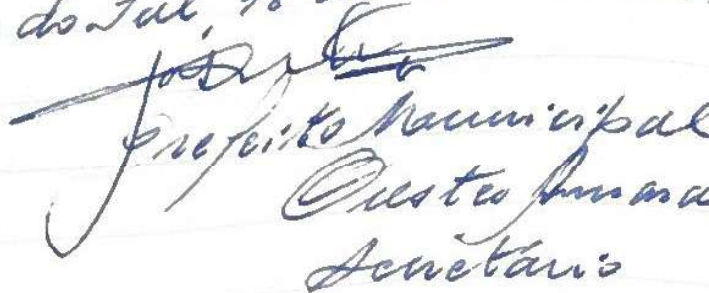 do Sul, 18
Prefeito Municipal
Orestes Amara
Secretário